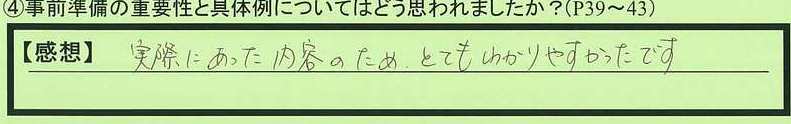 ④事前準備の重要性と具体例についてはどう思われましたか？(P39～43)
【感想】 実際にあった内容のため、とてもわかりやすかったです